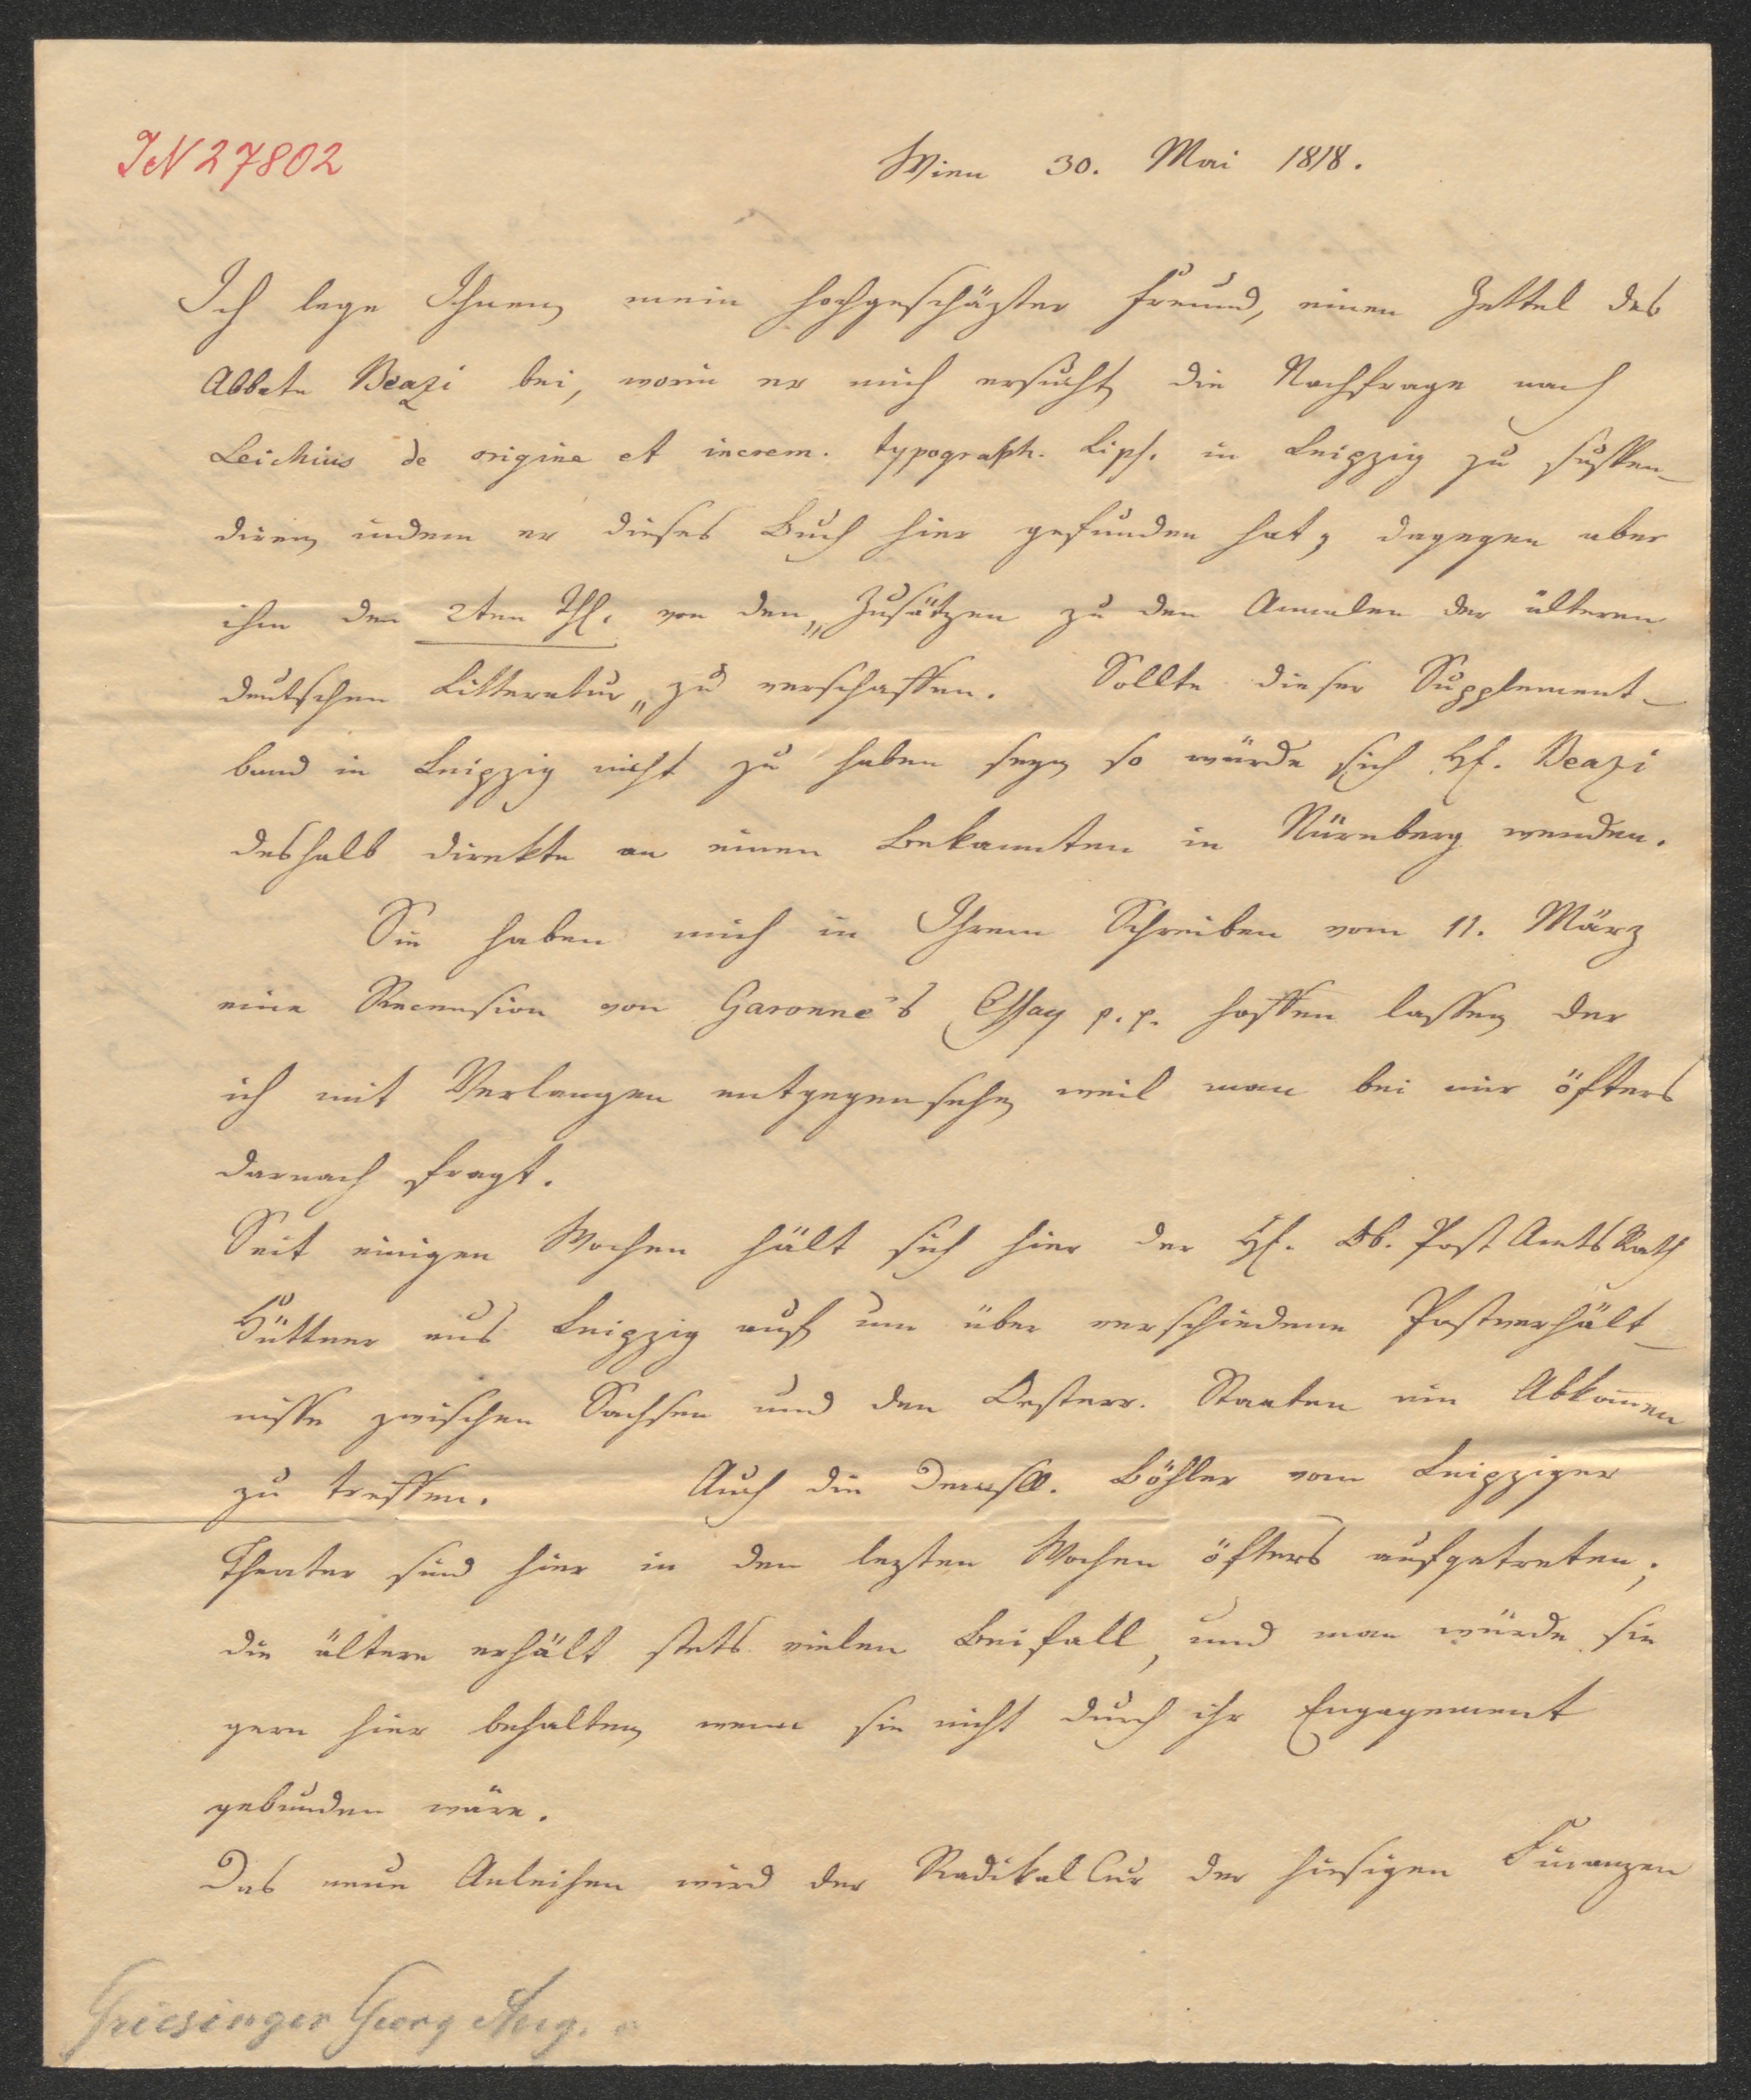 IN 27802
Wien 30. Mai 1818.
Ich lege Ihnen, mein hochgeschäzter Freund, einen Zettel des
Abbate Beazi bei, worin er mich ersucht, die Nachfrage nach
Leichius de origine et increm. typograph. Lips. in Leipzig zu suspen-
diren, indem er dieses Buch hier gefunden hat; dagegen aber
ihm den 2ten Th. von den „Zusätzen zu den Annalen der älteren
deutschen Litteratur„ zu verschaffen. Sollte dieser Supplement-
band in Leipzig nicht zu haben seyn, so würde sich H. Beazi
deshalb direkte an einen Bekannten in Nürnberg wenden.
Sie haben mich in Ihrem Schreiben vom 11. März
eine Recension von Garonne's Essay p. p. hoffen lassen, der
ich mit Verlangen entgegensehe, weil man bei mir öfters
darnach fragt.
Seit einigen Wochen hält sich hier der H. Ob. Post Amts Rath
Hüttner aus Leipzig auf, um über verschiedene Postverhält-
nisse zwischen Sachsen und den Oesterr. Staaten ein Abkom̄en
zu treffen. Auch die Demslls. Böhler vom Leipziger
Theater sind hier in den lezten Wochen öfters aufgetreten;
die ältere erhält stets vielen Beifall, und man würde sie
gern hier behalten, wenn sie nicht durch ihr Engagement
gebunden wäre.
Das neue Anleihen wird der Radikal Cur der hiesigen Finanzen
Griesinger Georg Aug.